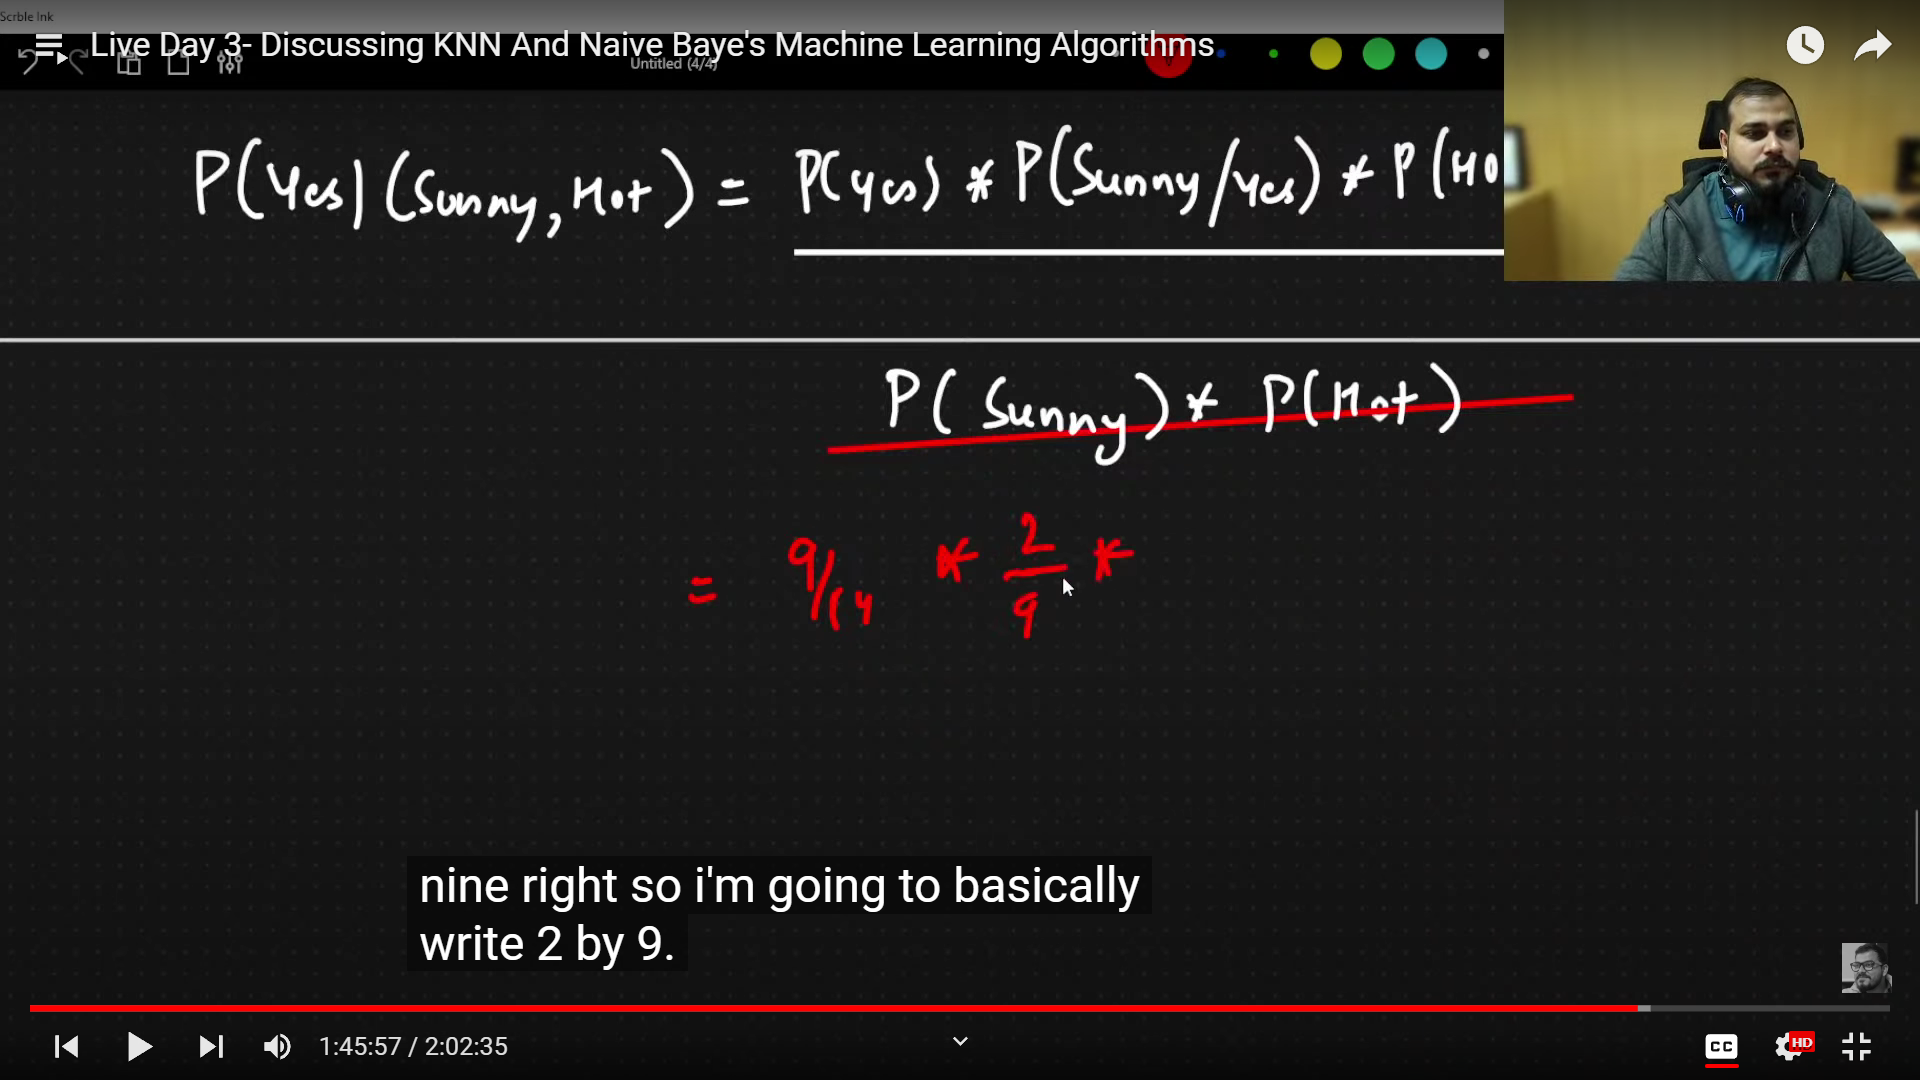 Scrble Ink
Live Day 3- Discussing KNN And Naive Baye's Machine Learning Algorithms
Untitled (4/4)
P(Yes)|(Sunny, Hot) = P(yes) * P(Sunny/Yes) * P(Ho
P(Sunny) * P(Hot)
= 9/14 * 2/9 *
nine right so i'm going to basically
write 2 by 9.
1:45:57 / 2:02:35
CC
HD